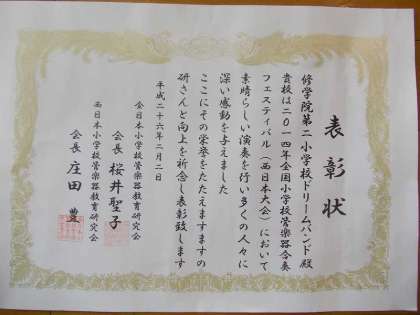 表彰状
修学院第二小学校ドリームバンド殿
貴校は二〇一四年全国小学校管楽器合奏
フェスティバル（西日本大会）において
素晴らしい演奏を行い多くの人々に
深い感動を与えました
ここにその栄誉をたたえますますの
研さんと向上を祈念し表彰致します
平成二十六年二月二日
全日本小学校管楽器教育研究会
会長 桜井聖子
西日本小学校管楽器教育研究会
会長 庄田 豊